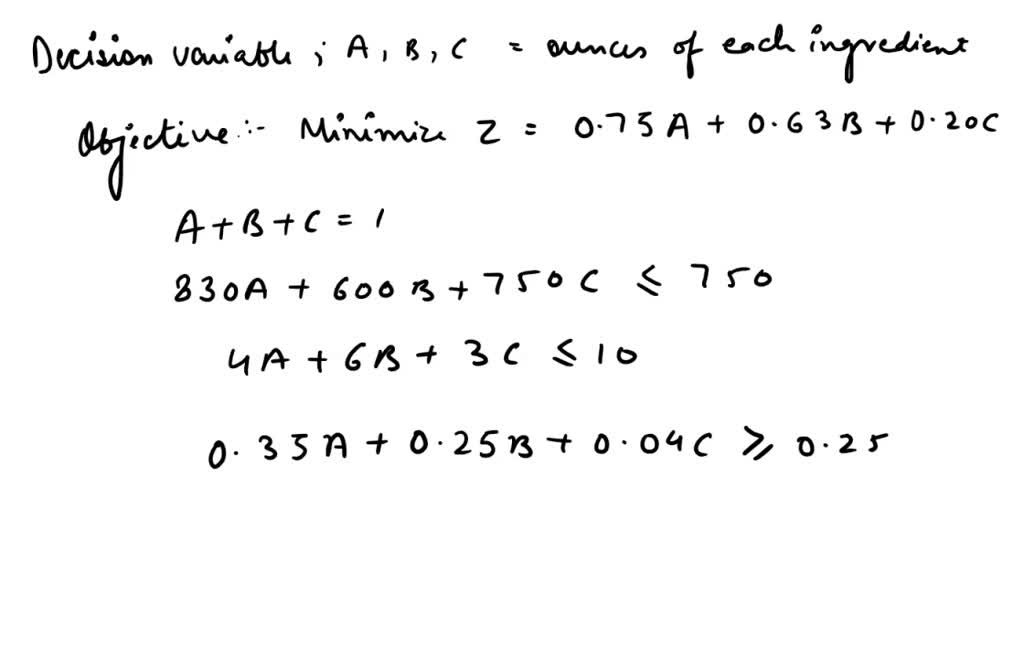 Decision variable ; A, B, C = ounces of each ingredient
Objective :- Minimize Z = 0.75A + 0.63B + 0.20C
A+B+C = 1
830A + 600B + 750C ≤ 750
4A + 6B + 3C ≤ 10
0.35A + 0.25B + 0.04C ≥ 0.25